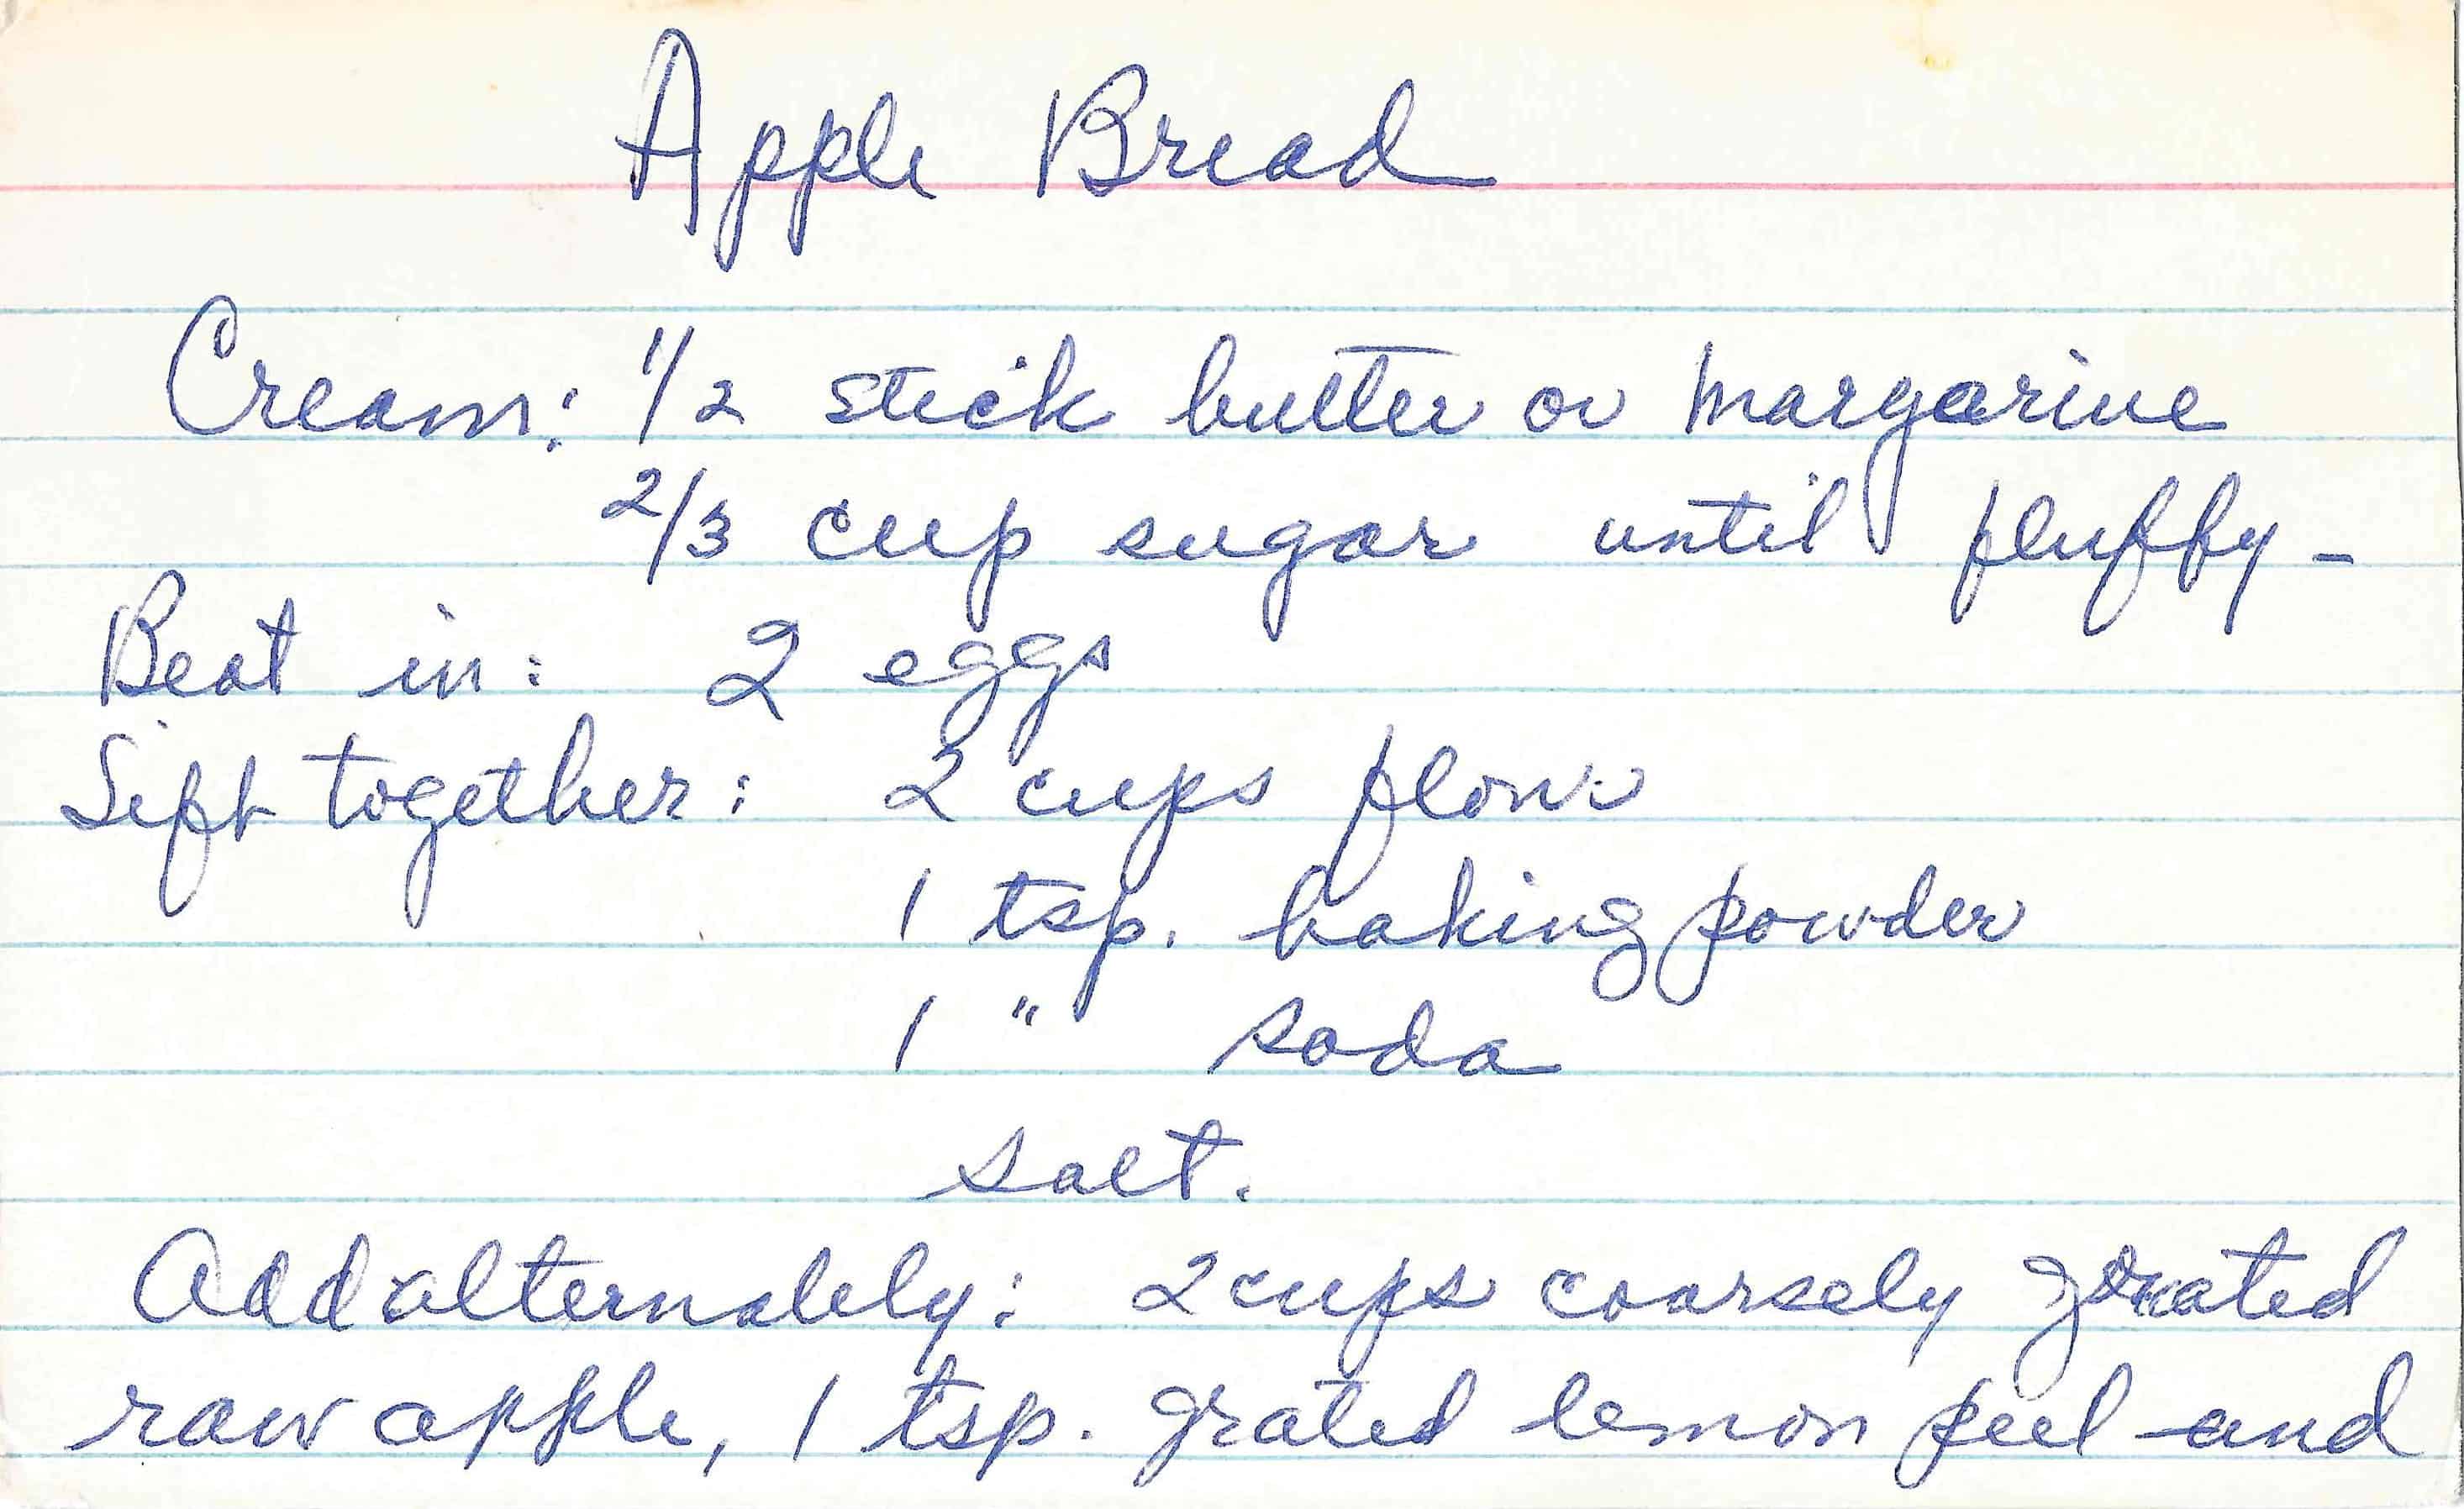 Apple Bread
Cream: 1/2 stick butter or margarine
2/3 cup sugar until fluffy -
Beat in: 2 eggs
Sift together: 2 cups flour
1 tsp. baking powder
1 " soda
salt.
Add alternately: 2 cups coarsely grated
raw apple, 1 tsp. grated lemon peel and